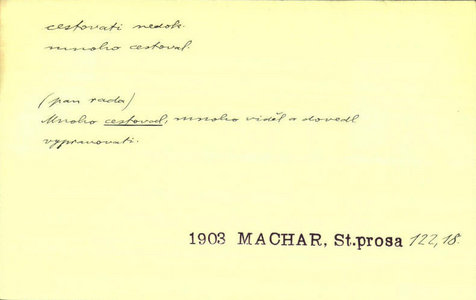 cestovati nedok.
mnoho cestoval.
(pan rada)
Mnoho cestoval, mnoho viděl a dovedl
vypravovati.
1903 MACHAR, St.prosa 122,18.